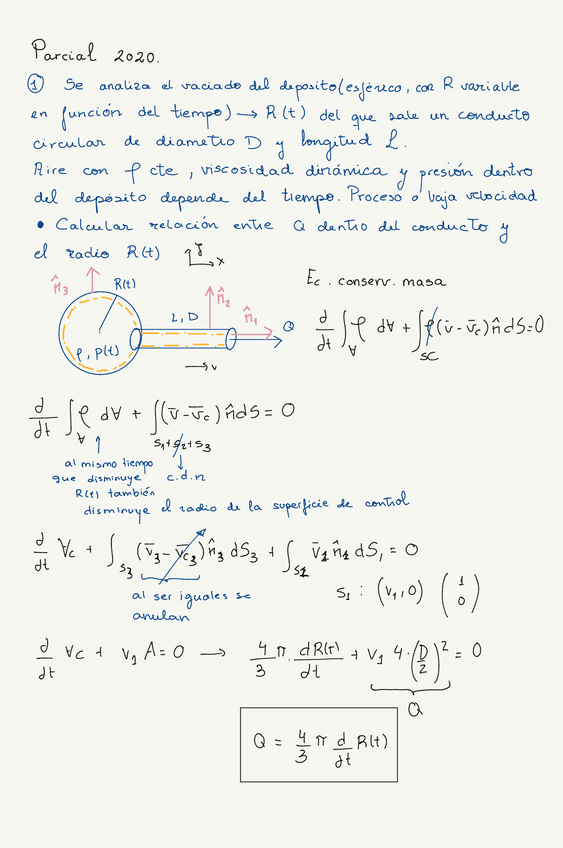 Parcial 2020.
① Se analiza el vaciado del deposito (esférico, con R variable
en función del tiempo) → R(t) del que sale un conducto
circular de diametro D y longitud L.
Aire con ρ cte, viscosidad dinámica y presión dentro
del depósito depende del tiempo. Proceso a baja velocidad
• Calcular relación entre Q dentro del conducto y
el radio R(t)
x
n̂₃
R(t)
L, D
n̂₂
n̂₁
Q
ρ, P(t)
→ v
Ec. conserv. masa
d/dt ∫_V ρ dV + ∫_SC ρ(v̄ - v̄c) n̂ dS = 0
d/dt ∫_V ρ dV + ∫_S₁+S₂+S₃ (v̄ - v̄c) n̂ dS = 0
al mismo tiempo
que disminuye
R(t) también
disminuye el radio de la superficie de control
c.d.n
d/dt Vc + ∫_S₃ (v̄₃ - v̄c₃) n̂₃ dS₃ + ∫_S₁ v̄₁ n̂₁ dS₁ = 0
al ser iguales se
anulan
S₁ : (v₁, 0) (1 0)
d/dt Vc + v₁ A = 0 → 4/3 π · dR(t)/dt + v₁ 4 · (D/2)² = 0
Q
Q = 4/3 π d/dt R(t)